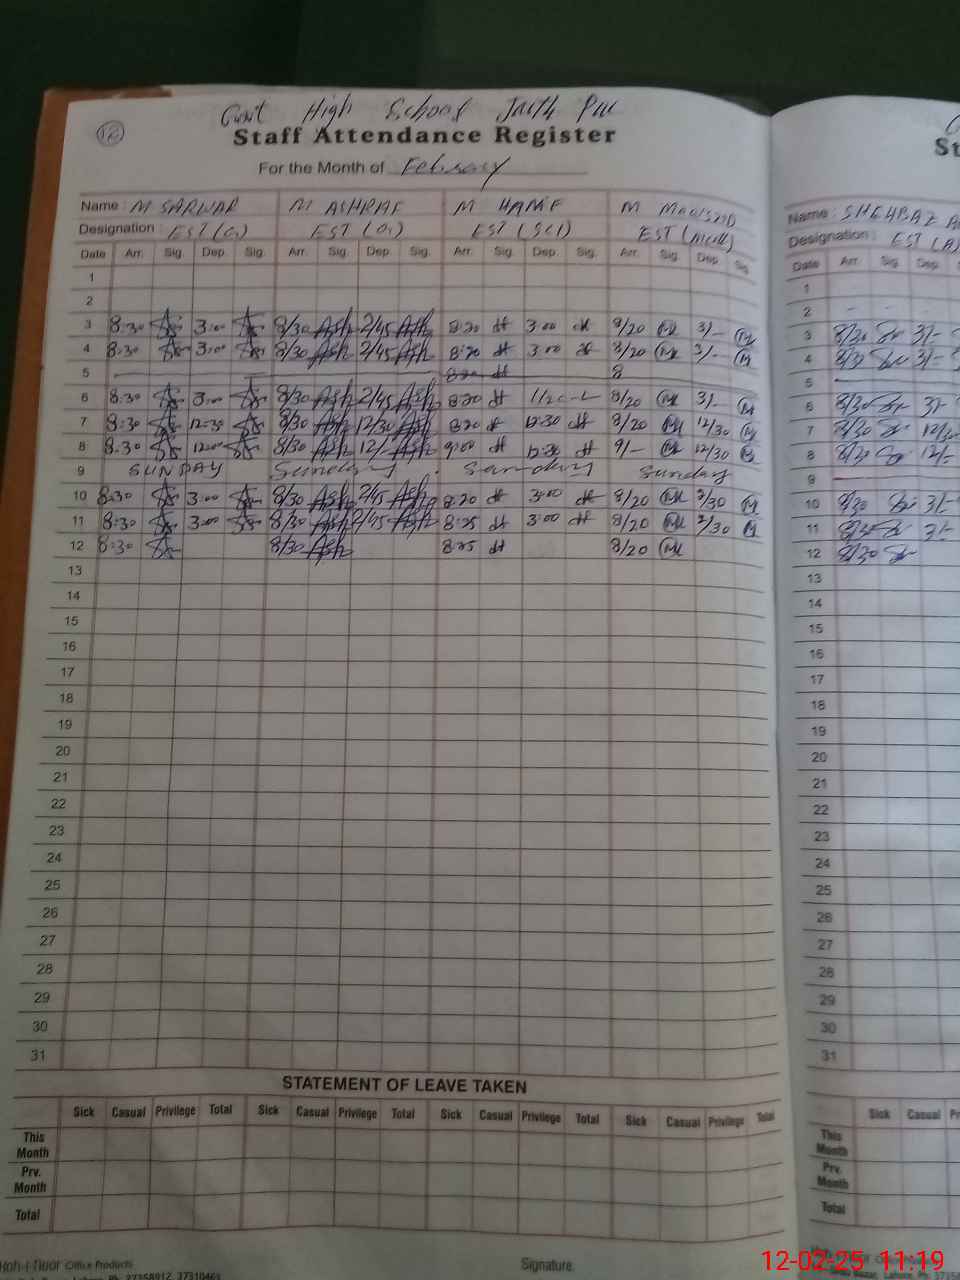 12
Govt High School
Staff Attendance Register
For the Month of February
Name : M SARWAR M ASHRAF M HANIF M
Designation : EST (O) EST (O) EST (SCI) EST
Date Arr. Sig. Dep. Sig. Arr. Sig. Dep. Sig. Arr. Sig. Dep. Sig. Arr. Sig. Dep. Sig.
1
2
3 8:30 3:00 8/30 Ash 2/45 Ash 8:20 3:00 8/20 3/-
4 8:30 3:00 8/30 Ash 2/45 Ash 8:20 3:00 8/20 3/-
5 8:20 8
6 8:30 3:00 8/30 Ash 2/45 Ash 8:20 8/20 3/-
7 8:30 12:30 8/30 Ash 12/30 Ash 8:20 12:30 8/20 12/30
8 8:30 12:00 8/30 Ash 12/- Ash 9:00 12:30 9/- 12/30
9 SUNDAY Sunday Sunday Sunday
10 8:30 3:00 8/30 Ash 2/45 Ash 8:20 3:00 8/20
11 8:30 3:00 8/30 Ash 2/45 Ash 8:25 3:00 8/20
12 8:30 8/30 Ash 8:25 8/20
13
14
15
16
17
18
19
20
21
22
23
24
25
26
27
28
29
30
31
STATEMENT OF LEAVE TAKEN
Sick Casual Privilege Total Sick Casual Privilege Total Sick Casual Privilege Total Sick Casual Privilege Total
This Month
Prv. Month
Total
Office Products
Ph: 37358912, 37310461
Signature
St
Name : SHEHBAZ
Designation : EST (A)
Date Arr. Sig. Dep.
1
2 - -
3 8/30 3/-
4 8/30 3/-
5
6 8/30 3/-
7 8/30 12/30
8 8/30 12/-
9
10 8/30 3/-
11 8/30 3/-
12 8/30
13
14
15
16
17
18
19
20
21
22
23
24
25
26
27
28
29
30
31
Sick Casual Pr
This Month
Prv. Month
Total
12-02-25 11:19